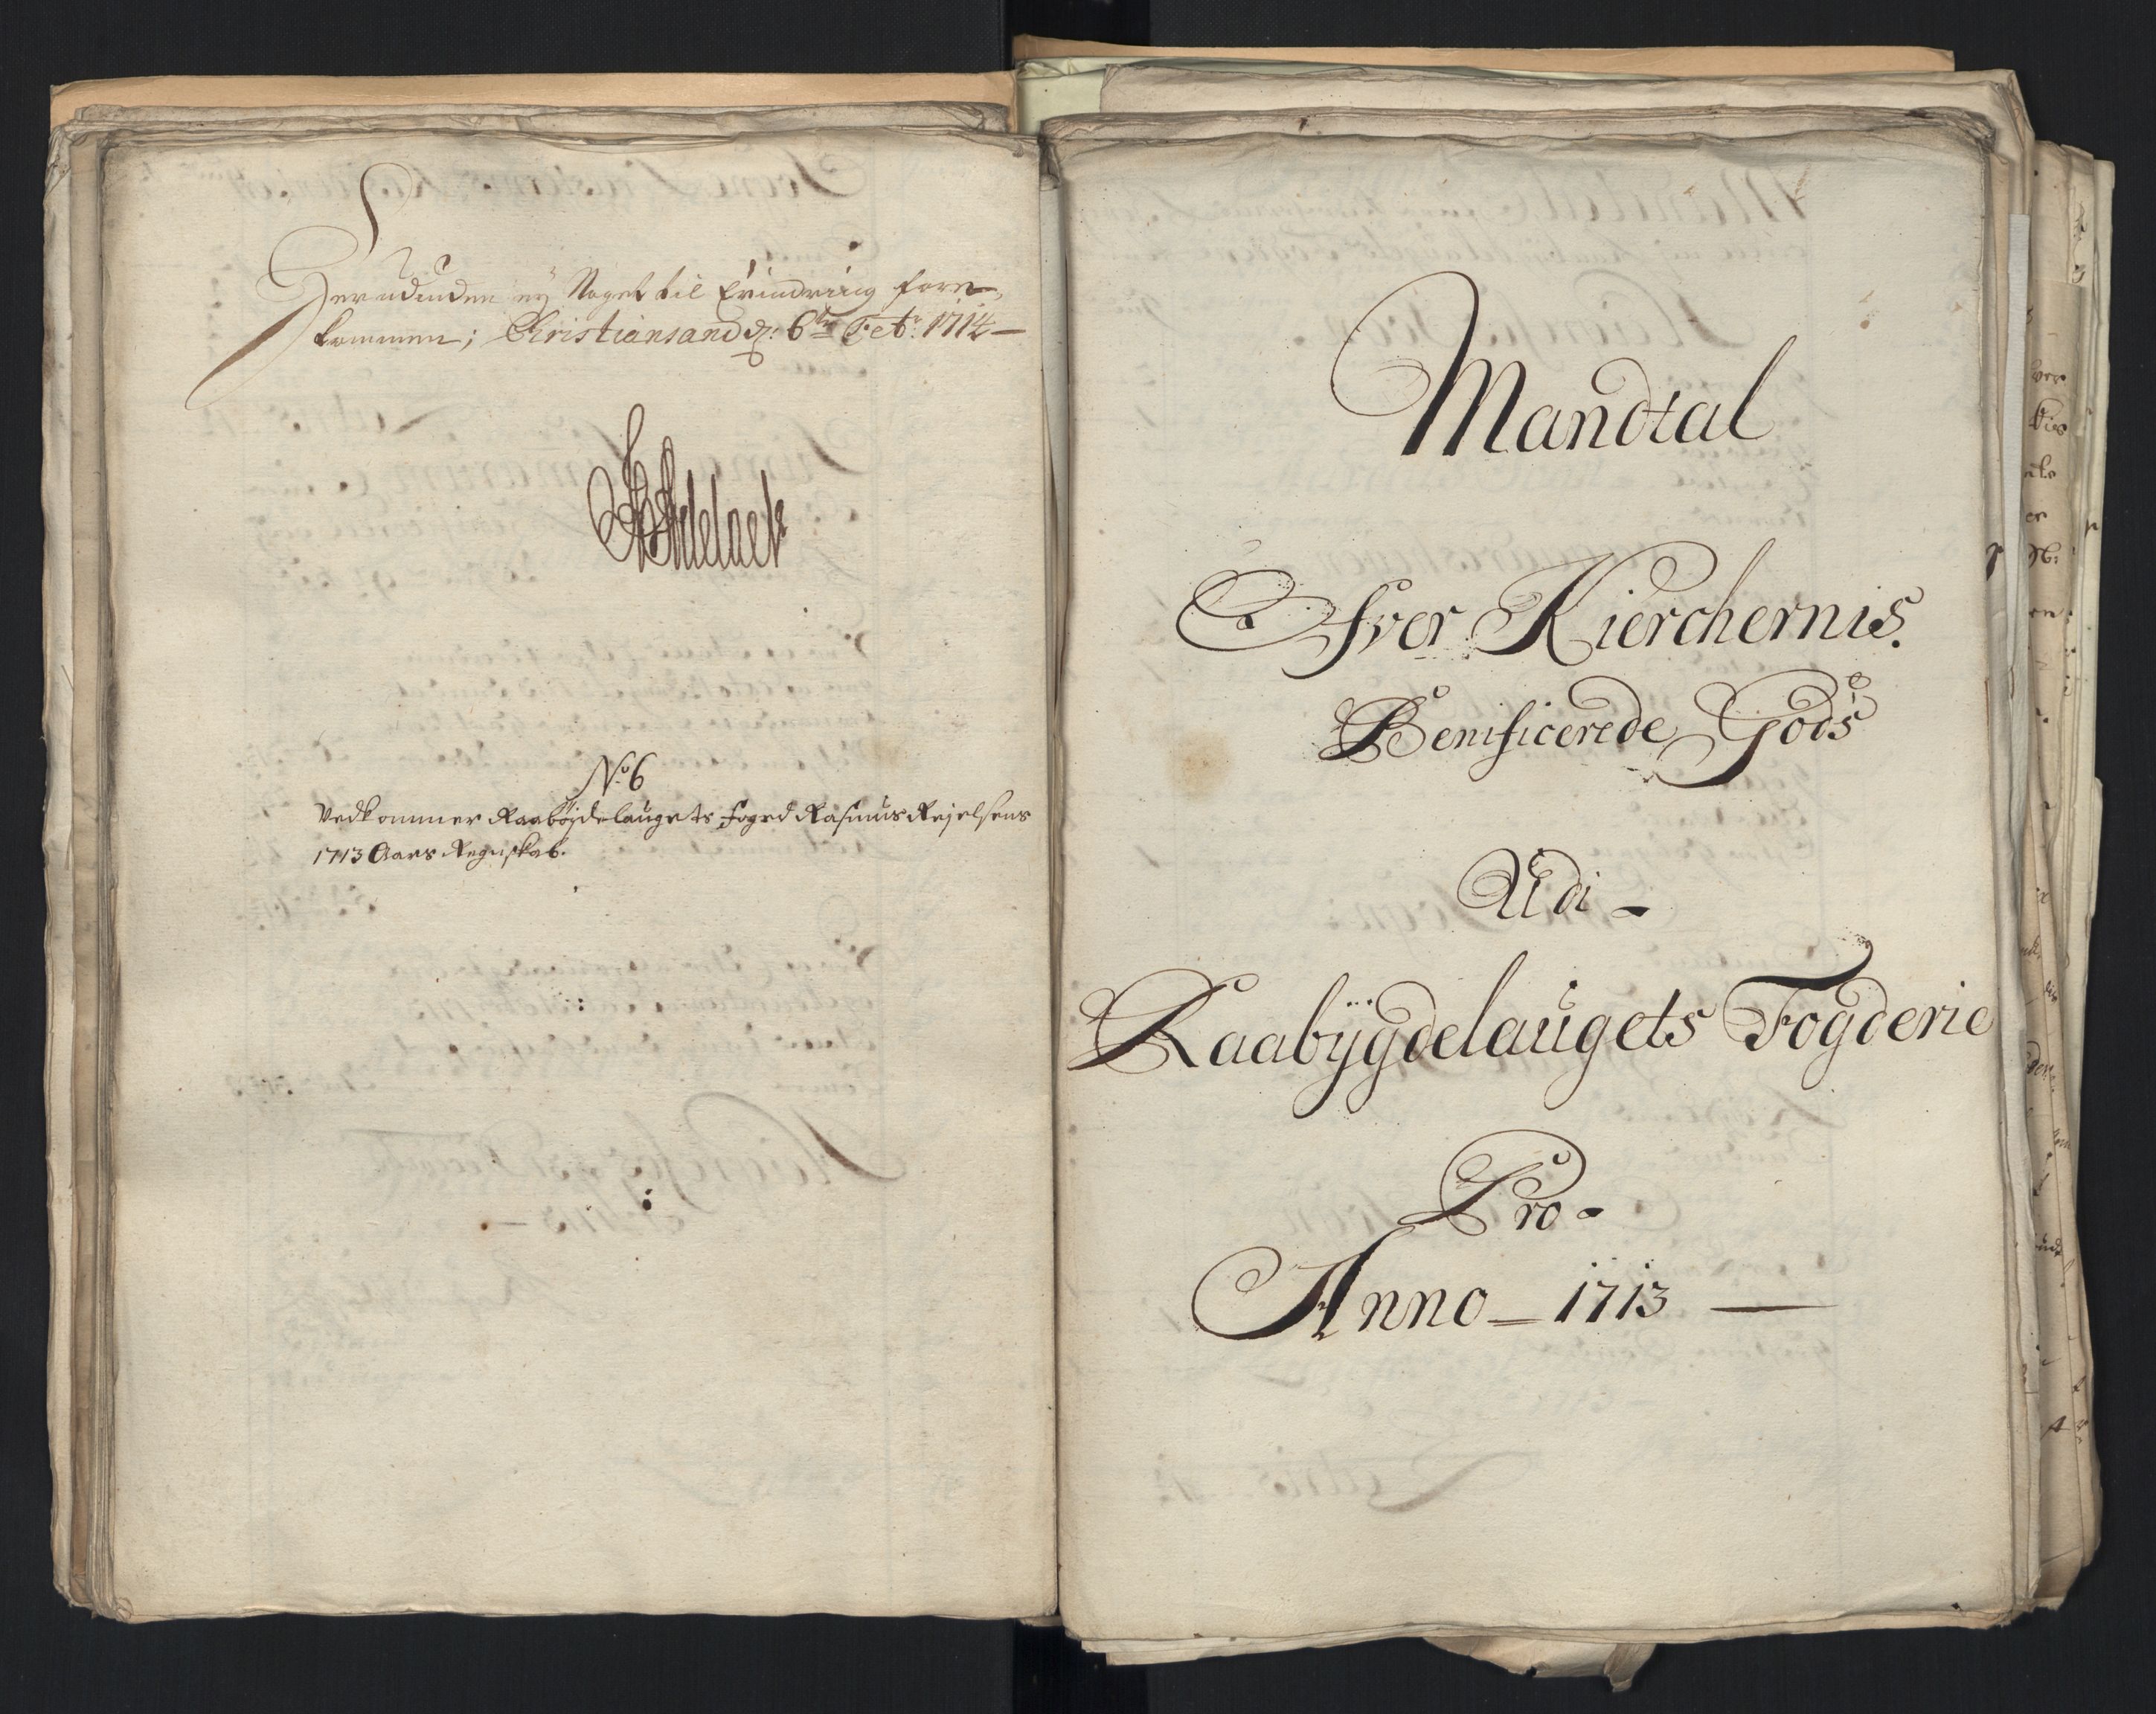 Herudinden ey Noget til Erindring fore„
kommen; Christiansand d: 6te Feb: 1714 —
No 6
Vedkommer Raabøjdelaugets Foged Rasmus Kejelsens
1713 Aars Regnskab.
Mandtal
Ofver Kierchernis
Benificerede Gods
Udi -
Raabÿgdelaugets Fogderie
Pro -
Anno - 1713 —